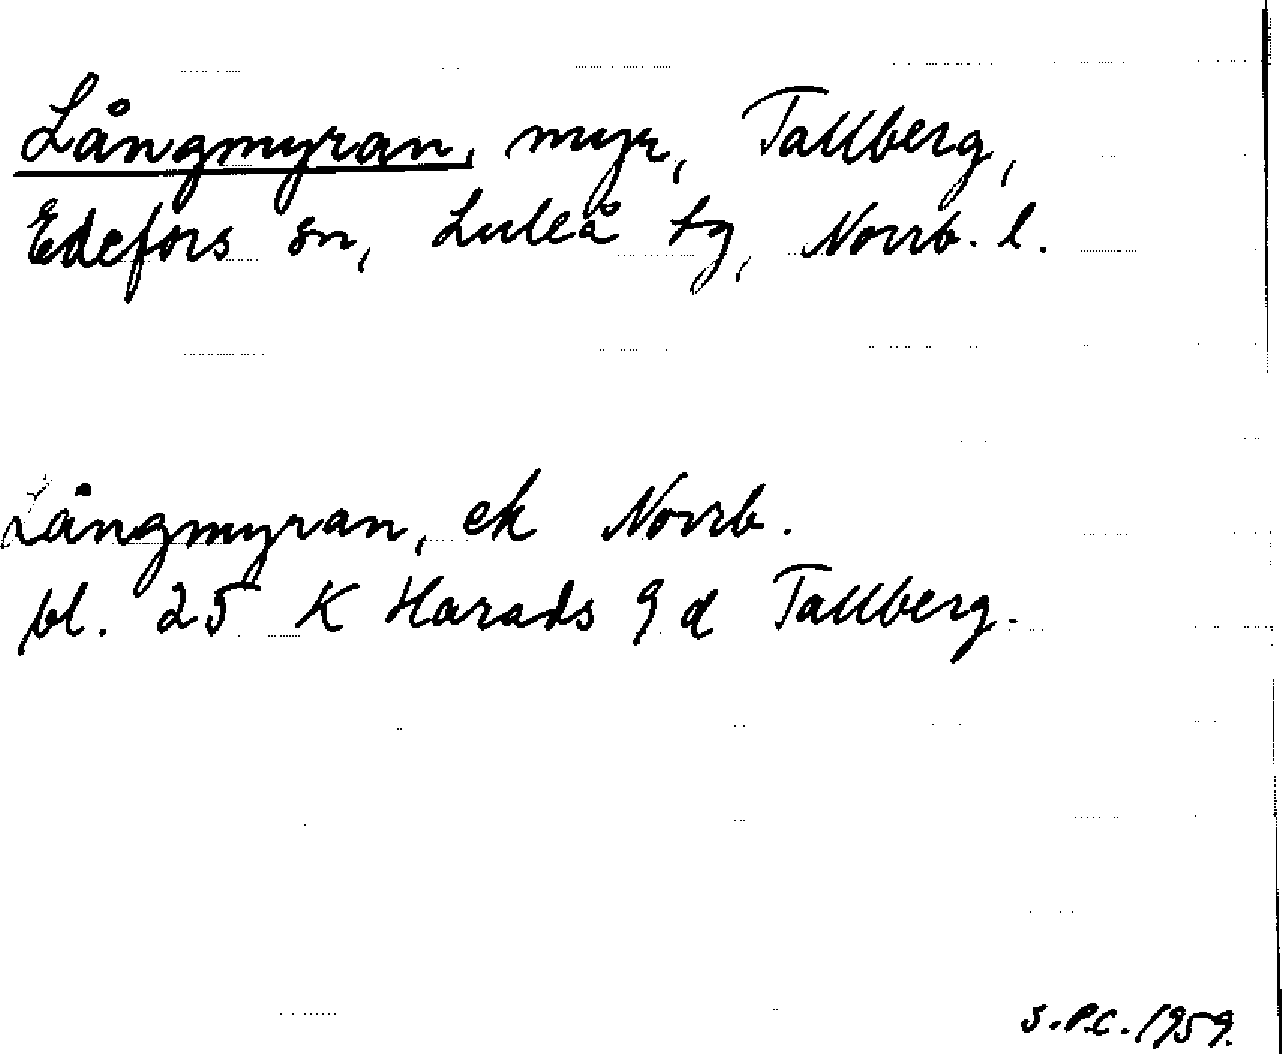 Långmyran, myr, Tallberg,
Edefors sn, Luleå tg, Norrb. l.
Långmyran, ek Norrb.
bl. 25 K Harads 9 d Tallberg.
S.P.C. 1959.